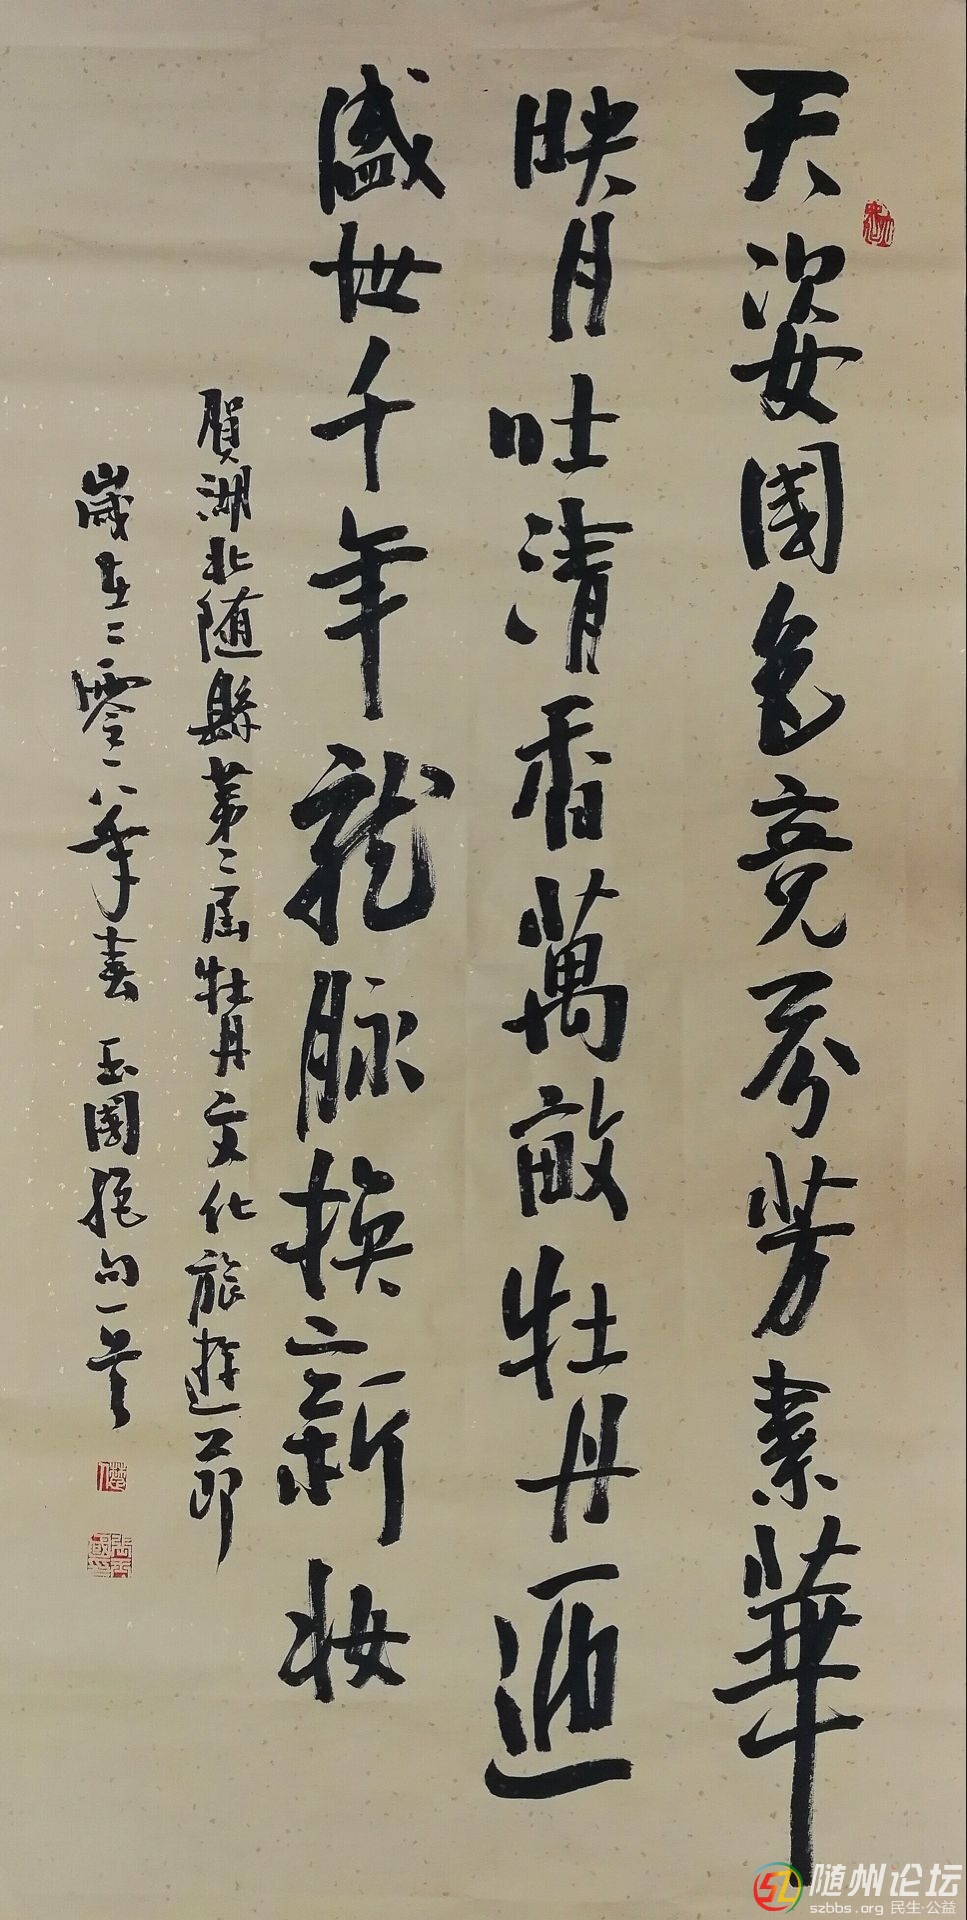 天姿國色竞芬芳素華
映月吐清香萬畝牡丹迎
盛世千年龍脉换新妆
賀湖北随縣第二届牡丹文化旅遊節
歲在二零一八年春 玉國絶句一首
随州论坛
szbbs.org 民生·公益